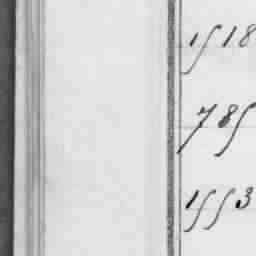 1518
785
1553